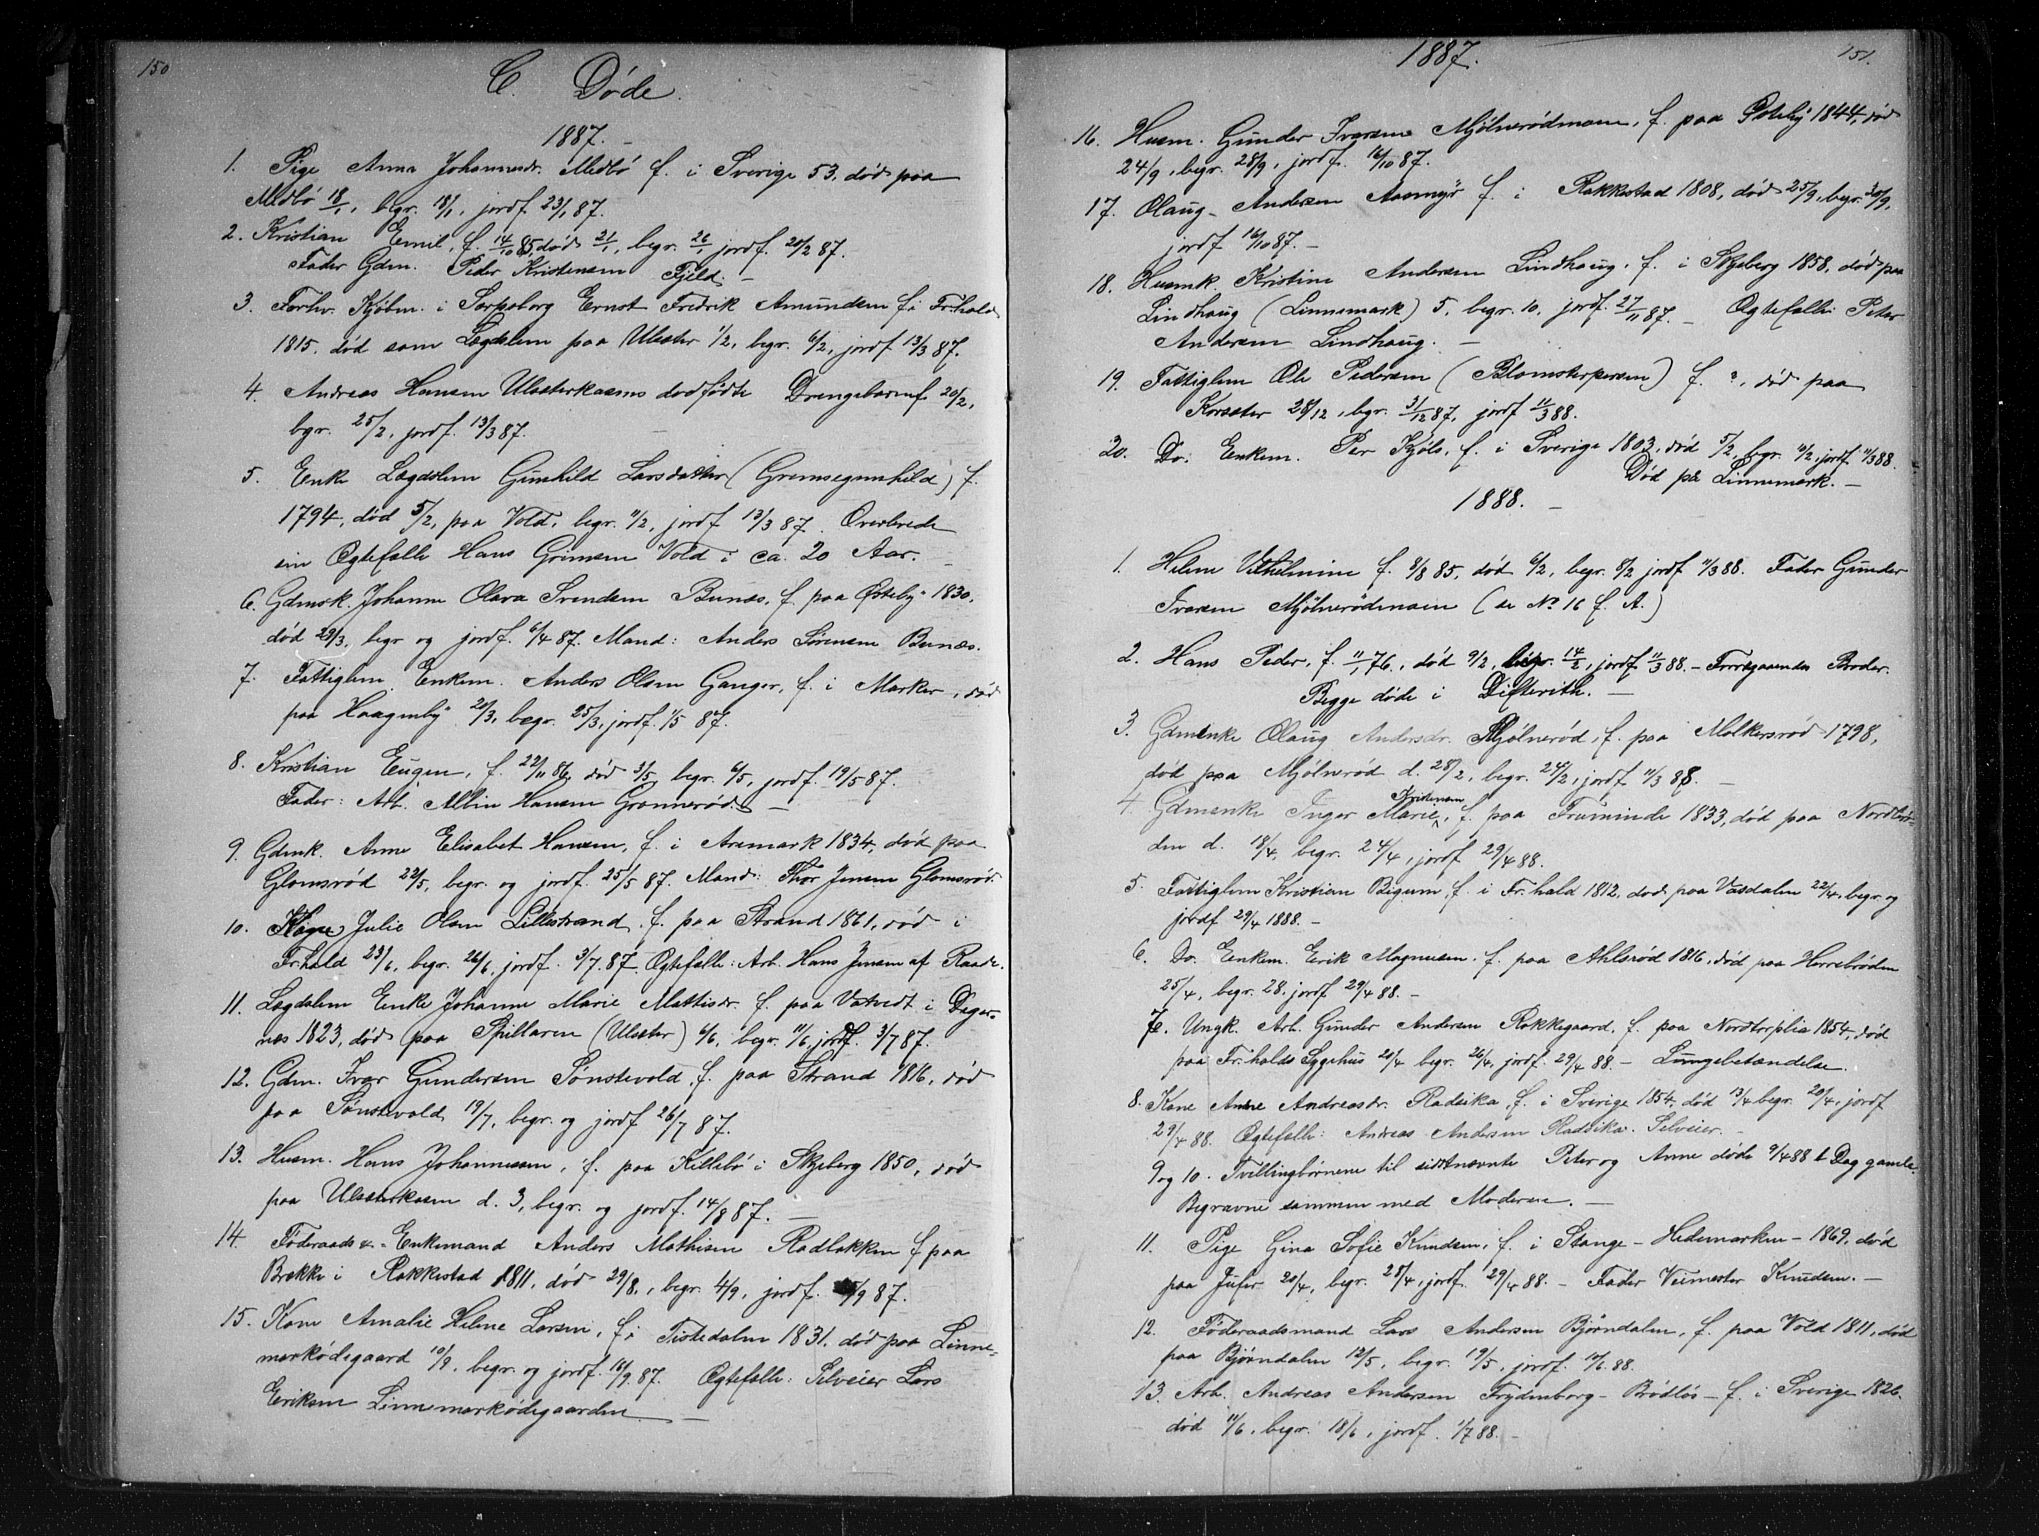 150
C. Døde.
1887. –
1. Pige Anna Johannesdr. Medbø f. i Sverige 53, død paa
Medbø 13/1, begr. 18/1, jordf. 23/1 87.
2. Kristian Emil, f. 14/10 85, død 21/1, begr. 26/1 jordf. 20/2 87.
Fader Gdm. Peder Kristensen Fjeld. –
3. Forhv. Kjøbm. i Sarpsborg Ernst Fredrik Amundsen f. i Fr.hald
1815, død som Lægdslem paa Ulsæter 1/2, begr. 6/2, jordf 13/3 87.
4. Andreas Hansen Ulsæterkasens dødfødte Drengebarn f. 20/2,
bgr. 25/2, jordf. 13/3 87.
5. Enke Lægdslem Gunhild Larsdatter (Grimsegunhild) f.
1794, død 5/2, paa Vold, begr. 11/2, jordf 13/3 87. Overlevede
sin Ægtefælle Hans Grimsen Vold i ca. 20 Aar. –
6. Gdmsk. Johanne Olava Svendsen Bunæs, f. paa Østeby 1830,
død 29/3, begr og jordf. 6/4 87. Mand: Anders Sørensen Bunæs.
7. Fattiglem Enkem. Anders Olsen Ganger, f. i Marker, død
paa Haagenby 20/3, begr. 25/3, jordf. 1/5 87.
8. Kristian Eugen, f. 22/11 86, død 3/5, begr. 6/5, jordf. 19/5 87.
Fader: Arb. Albin Hansen Grønnerød. –
9. Gdmk. Anne Elisabet Hansen, f. i Aremark 1834, død paa
Glomsrød 22/5, begr. og jordf. 25/5 87. Mand: Thor Jensen Glomsrød.
10. Julie Olsen Lillestrand, f. paa Strand 1861, død i
Fr.hald 23/6, begr. 26/6, jordf. 3/7 87, Ægtefælle: Arb. Hans Jensen af Raade.
11. Lægdslem Enke Johanne Marie Mattisdr. f. paa Vatvedt i Deger-
næs 1823, død paa Spillaren (Ulsæter) 6/6, begr. 11/6, jordf. 3/7 87.
12. Gdm. Ivar Gundersen Sønstevold, f. paa Strand 1816, død
paa Sønstevold 19/7, begr. og jordf 26/7 87.
13. Husm. Hans Johannessen, f. paa Killebø i Skjeberg 1850, død
paa Ulsæterkasen d. 3, begr. og jordf. 14/8 87. –
14. Føderaads &. – Enkemand Anders Mathisen Rødbakken f paa
Brekke i Rakkestad 1811, død 29/8, begr. 4/9, jordf. /9 87.
15. Kone Amalie Helene Larsen, f. i Tistedalen 1831, død paa Linne-
markødegaard 10/9, begr. og jordf. 16/9 87. Ægtefælle: Selveier Lars
Eriksen Linnemarkødegaarden. –
1887.
151.
16. Husm. Gunder Ivarsen Mjølnerødmoen, f. paa Østeby 1844, død
24/9, begr. 28/9, jordf. 16/10 87.
17. Olaug Andersen Aasmyr f. i Rakkestad 1808, død 25/9, begr. 30/9,
jordf 16/10 87. –
18. Husmk. Kristine Andersen Lindhaug, f. i Skjeberg 1858, død paa
Lindhaug (Linnemark) 5, begr. 10, jordf. 27/11 87. – Ægtefælle: Peter
Andersen Lindhaug. –
19. Fattiglem Ole Pedersen (Blomsterpersen) f. ?, død paa
Korsæter 28/12, begr. 31/12 87, jordf 11/3 88.
20. Do. Enkem. Per Kjøls, f. i Sverige 1803, død 5/2, begr. 11/2, jordf 11/3 88.
Død paa Linnemark. –
1888. –
1. Helene Vilhelmine f. 9/8 85, død 6/2, begr. 8/2 jordf 11/3 88. Fader Gunder
Ivarsen Mjølnerødmoen (se No 16 f. A.)
2. Hans Peder, f. 11/1 76, død 9/2, begr. 14/2, jordf 11/3 88. – Foregaaendes Broder.
Begge døde i Difterith. –
3. Gdmenke Olaug Andersdr. Mjølnerød, f. paa Molkersrød 1798,
død paa Mjølnerød d. 28/2, begr. 24/2, jordf. 11/3 88. –
4. Gdmenke Inger Marie Kristensen, f. paa Fruminde 1833, død paa Nordbrø-
den d. 18/4, begr. 24/4, jordf 29/4 88.
5. Fattiglem Kristian Bigum, f. i Fr.hald 1812, død paa Vasdalen 22/4, begr. og
jordf 29/4 1888. –
6. Do. Enkem. Erik Magnusen, f. paa Ahlsrød 1816, død paa Herrebrøden
25/4, begr. 28, jordf 29/4 88. –
7. Ungk. Arb. Gunder Andersen Rokkegaard, f. paa Nordtorplia 1854, død
paa Fr.halds Sygehus 20/4 begr. 26/4, jordf. 29/4 88. – Lungebetændelse.
8. Kone Anne Andreasdr. Radsika, f. i Sverige 1854, død 13/4 begr. 20/4, jordf
29/4 88. Ægtefælle: Andreas Andersen Radsika. Selveier. –
9 og 10. Tvillingbørnene til sidstnævnte Peter og Anne døde 9/4 88 1 Dag gamle.
Begravne sammen med Moderen. –
11. Pige Gina Sofie Knudsen, f. i Stange – Hedemarken – 1869, død
paa Jufer 20/4, begr. 28/4, jordf. 29/4 88. – Fader Veimester Knudsen. –
12. Føderaadsmand Lars Andersen Bjørndalen, f. paa Vold 1811, død
paa Bjørndalen 12/5, begr. 19/5, jordf. 10/6 88.
13. Arb. Andreas Andersen Frydenborg – Brødløs – f. i Sverige 1826.
død 11/6, begr. 18/6, jordf. 1/7 88. –